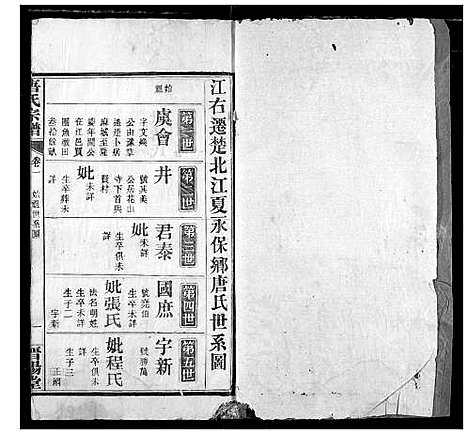 江右遷楚北江夏永保鄉唐氏世系圖
始祖
第一世
虞會
字文煥
公由豫章
遷楚卜居
麻城至隆
慶年間公
在江邑買
圈魚墩田
叁拾餘畝
第二世
井
號其美
公居花山
寺下首與
賢村
妣未詳
生卒葬未
詳
第三世
君泰
妣未詳
生卒俱未
詳
第四世
國庶
號堯伯
生卒俱未
詳
妣張氏
法名萌姓
生子二
字新
第五世
宇新
號勝萬
妣程氏
生卒俱未
詳
生子三
唐氏宗譜
卷一
始祖世系圖
一
晋陽堂